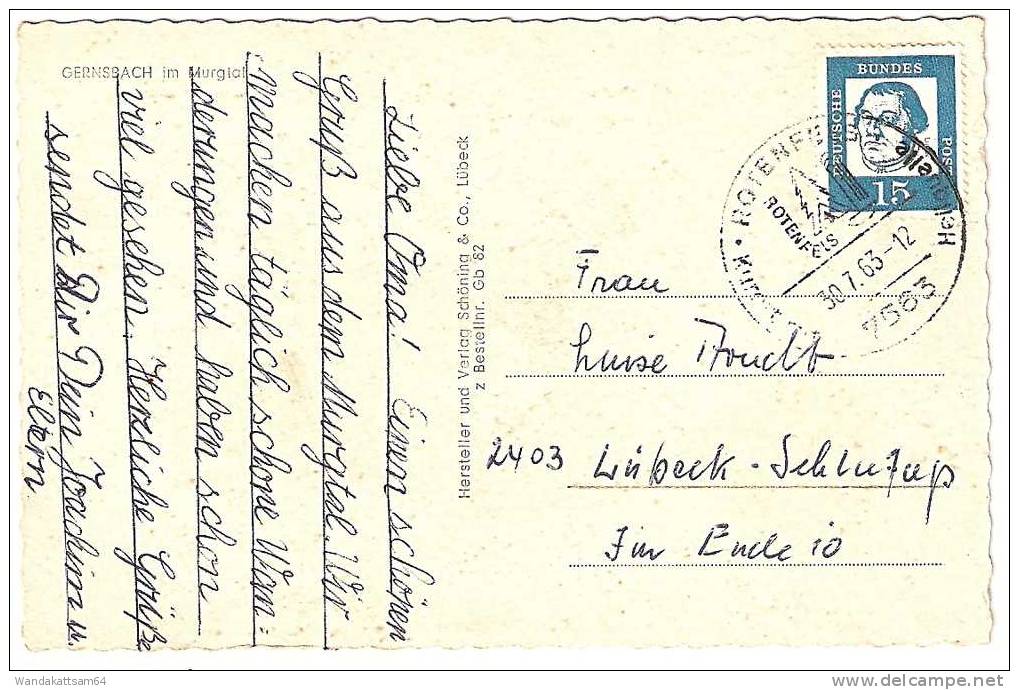 GERNSBACH im Murgtal
Liebe Oma! Einen schönen
Gruß aus dem Murgtal. Wir
machen täglich schöne Wan=
derungen und haben schon
viel gesehen. Herzliche Grüße
sendet Dir Dein Joachim u.
Eltern
Hersteller und Verlag Schöning & Co., Lübeck
z Bestellnr. Gb 82
DEUTSCHE
BUNDES
POST
15
ROTENFELS
ROTENFELS
30.7.63-12
7563
Frau
Luise
2403 Lübeck - Schlutup
Im Ende 10
Wandakattsam64
delcampe.net